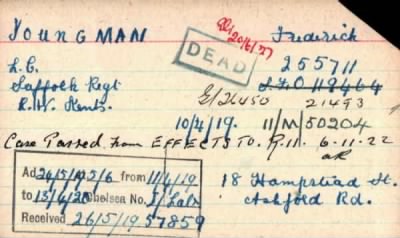 YOUNGMAN Frederick
20/6/27
DEAD
L.C. 255711
Suffolk Regt
R.W. Kents. G/26450 21493
10/4/19. 11/M/50204
Case Passed from EFFECTS TO. 6.11.22
Ad 24/5/19 5/6 from 11/4/19
to 13/6/20 Chelsea No.
Received 26/5/19 57859
18 Hampstead St.
Ashford Rd.